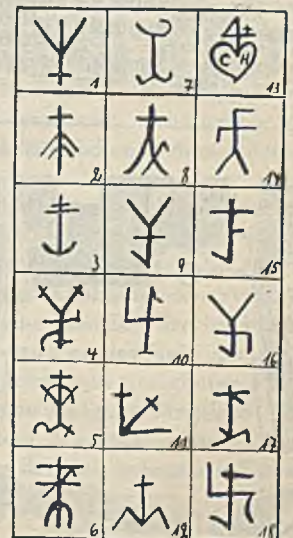 1 7 13
C H
2 8 14
3 9 15
4 10 16
5 11 17
6 12 18